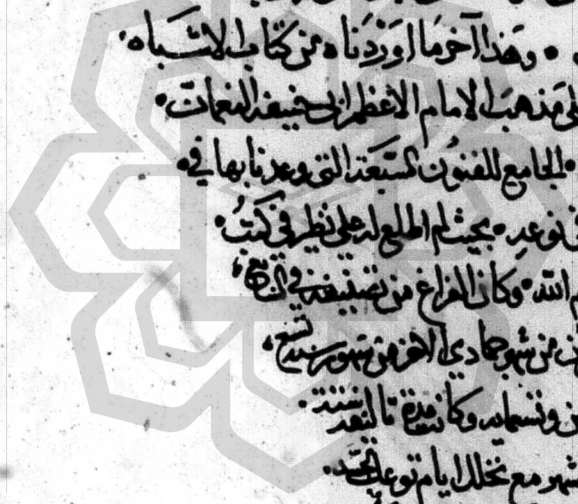 وهذا آخر ما اوردناه من كتاب الاشباه
في مذهب الامام الاعظم ابي حنيفة النعمان
الجامع للفنون السبعة التي وعدنا بها في
نوعه بحيث لم اطلع له على نظير في كتب
الله وكان الفراغ من تصنيفه في التاسع
من شهر جمادي الاخر من شهور سنة تسع
وتسمايه وكانت مدة تاليفه ستة
شهر مع تخلل ايام توعك الجسد